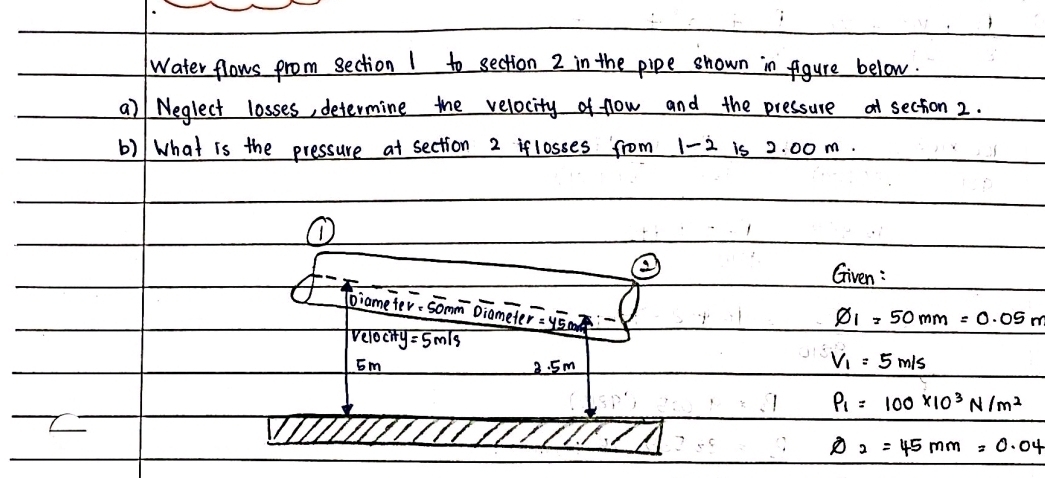 Water flows from section 1 to section 2 in the pipe shown in figure below.
a) Neglect losses, determine the velocity of flow and the pressure at section 2.
b) What is the pressure at section 2 if losses from 1-2 is 2.00 m.
①
②
Diameter = 50mm Diameter = 45mm
Velocity = 5m/s
5m
2.5m
Given:
Ø1 = 50 mm = 0.05 m
V1 = 5 m/s
P1 = 100 x10³ N/m²
Ø2 = 45 mm = 0.04